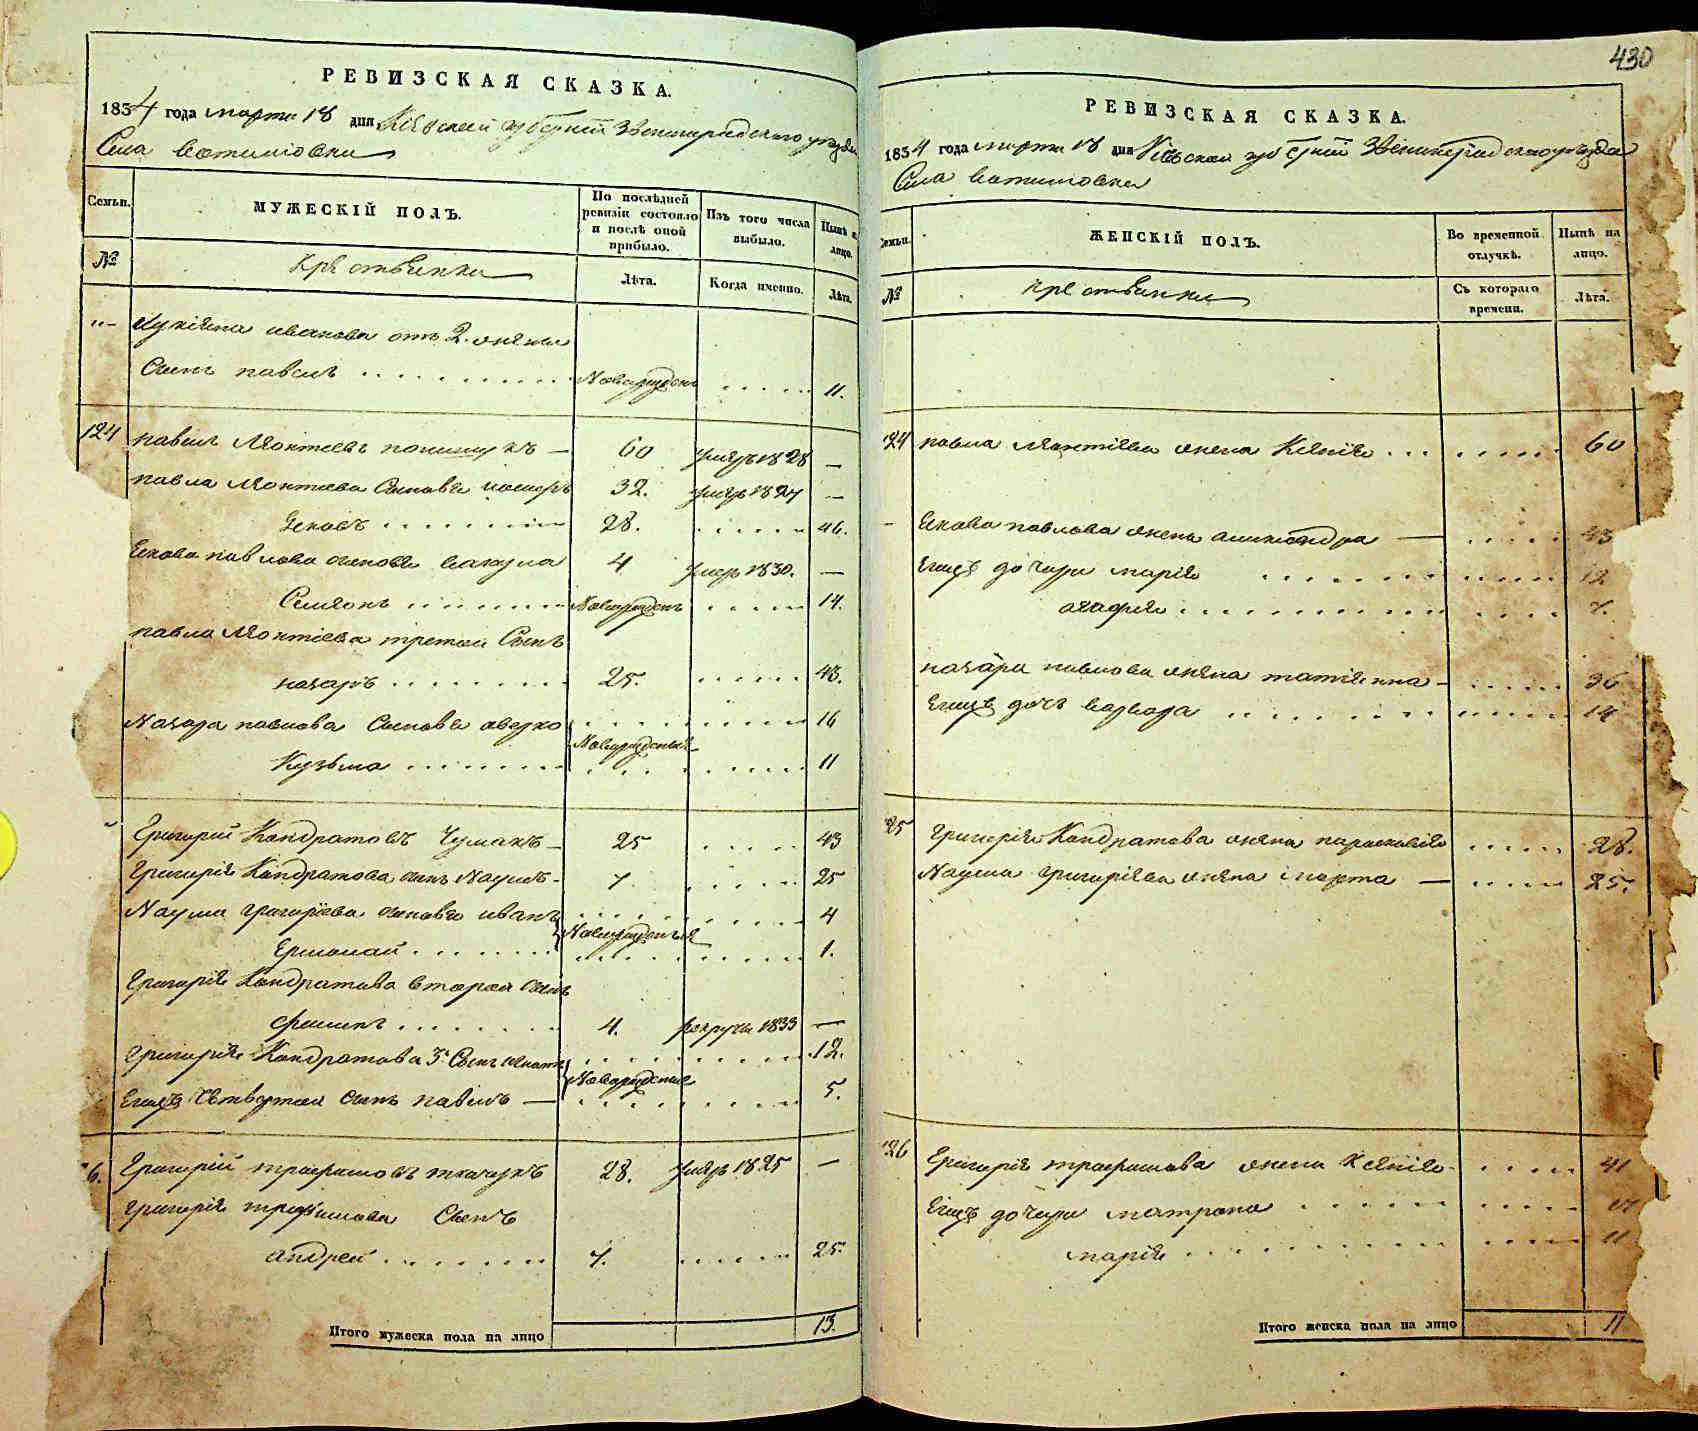 РЕВИЗСКАЯ СКАЗКА.
1834 года марта 18 дня Кіевской губерніи Звенигородского уезда
Села
Семьи.
МУЖЕСКІЙ ПОЛЪ.
По послѣдней ревизіи состояло и послѣ оной прибыло.
Изъ того числа выбыло.
Нынѣ на лицо.
№
Крестьяники
Лѣта.
Когда именно.
Лѣта.
"- Лукіяна иванова отъ 2. жены
Сынъ павелъ Новорожденъ 11.
124 павелъ Мойтеевъ 60 умеръ 1828 —
павла Мойтеева Сыновья 32. умеръ 1827 —
Яковъ 28. 46.
Якова павлова сыновья вакула 4 умеръ 1830. —
Симеонъ Новорожденъ 14.
павла Мойтіева третій Сынъ
назаръ 25. 43.
Назара павлова Сыновья аверко 16
Новорожденные
Кузьма 11
Григорій Кондратовъ Чумакъ 25 43
Григорія Кондратова сынъ Наумъ 7 25
Наума григоріева сыновья иванъ 4
Новорожденные
Ермолай 1.
Григорія Кондратова второй сынъ
4. рекрутъ 1833 —
Григорія Кондратова 3й Сынъ 12.
Новорожденные
Егожъ Четвертой сынъ павелъ 5.
6. Григорій трофимовъ ткачукъ 28. умеръ 1825 —
Григорія трофимова Сынъ
андрей 7. 25.
Итого мужеска пола на лицо 13.
430
РЕВИЗСКАЯ СКАЗКА.
1834 года марта 18 дня Кіевской губерніи Звенигородского уезда
Села
Семьи.
ЖЕНСКІЙ ПОЛЪ.
Во временной отлучкѣ.
Нынѣ на лицо.
№
Крестьянки
Съ котораго времени.
Лѣта.
124 павла Мойтіева жена Ксенія 60
- Якова павлова жена александра 43
Егожъ дочери марія 12
агафія 7.
назара павлова жена татіянна 36
Егожъ дочь варвара 14
125 Григорія Кондратова жена парасковія 28.
Наума григоріева жена марта 25.
126 Григорія трофимова жена Ксенія 41
Егожъ дочери матрона 17
марія 11
Итого женска пола на лицо 11